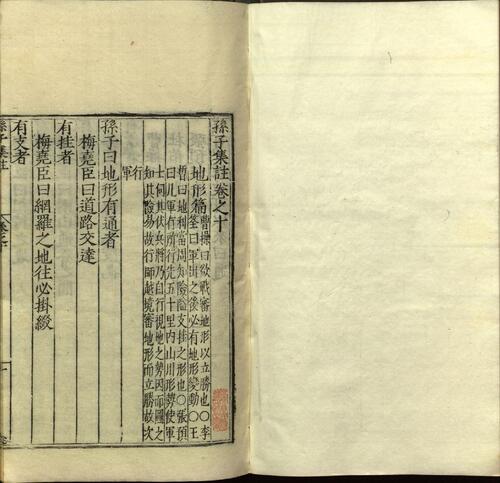 孫子集註卷之十
地形篇
曹操曰欲戰審地形以立勝也○李
筌曰軍出之後必有地形變動○王
晳曰地利當周知險隘支挂之形也○張預
曰凡軍有所行先五十里內山川形勢使軍
士伺其伏兵將乃自行視地之勢因而圖之
知其險易故行師越境審地形而立勝故次
行
軍
孫子曰地形有通者
梅堯臣曰道路交達
有挂者
梅堯臣曰網羅之地往必掛綴
有支者
孫子集註